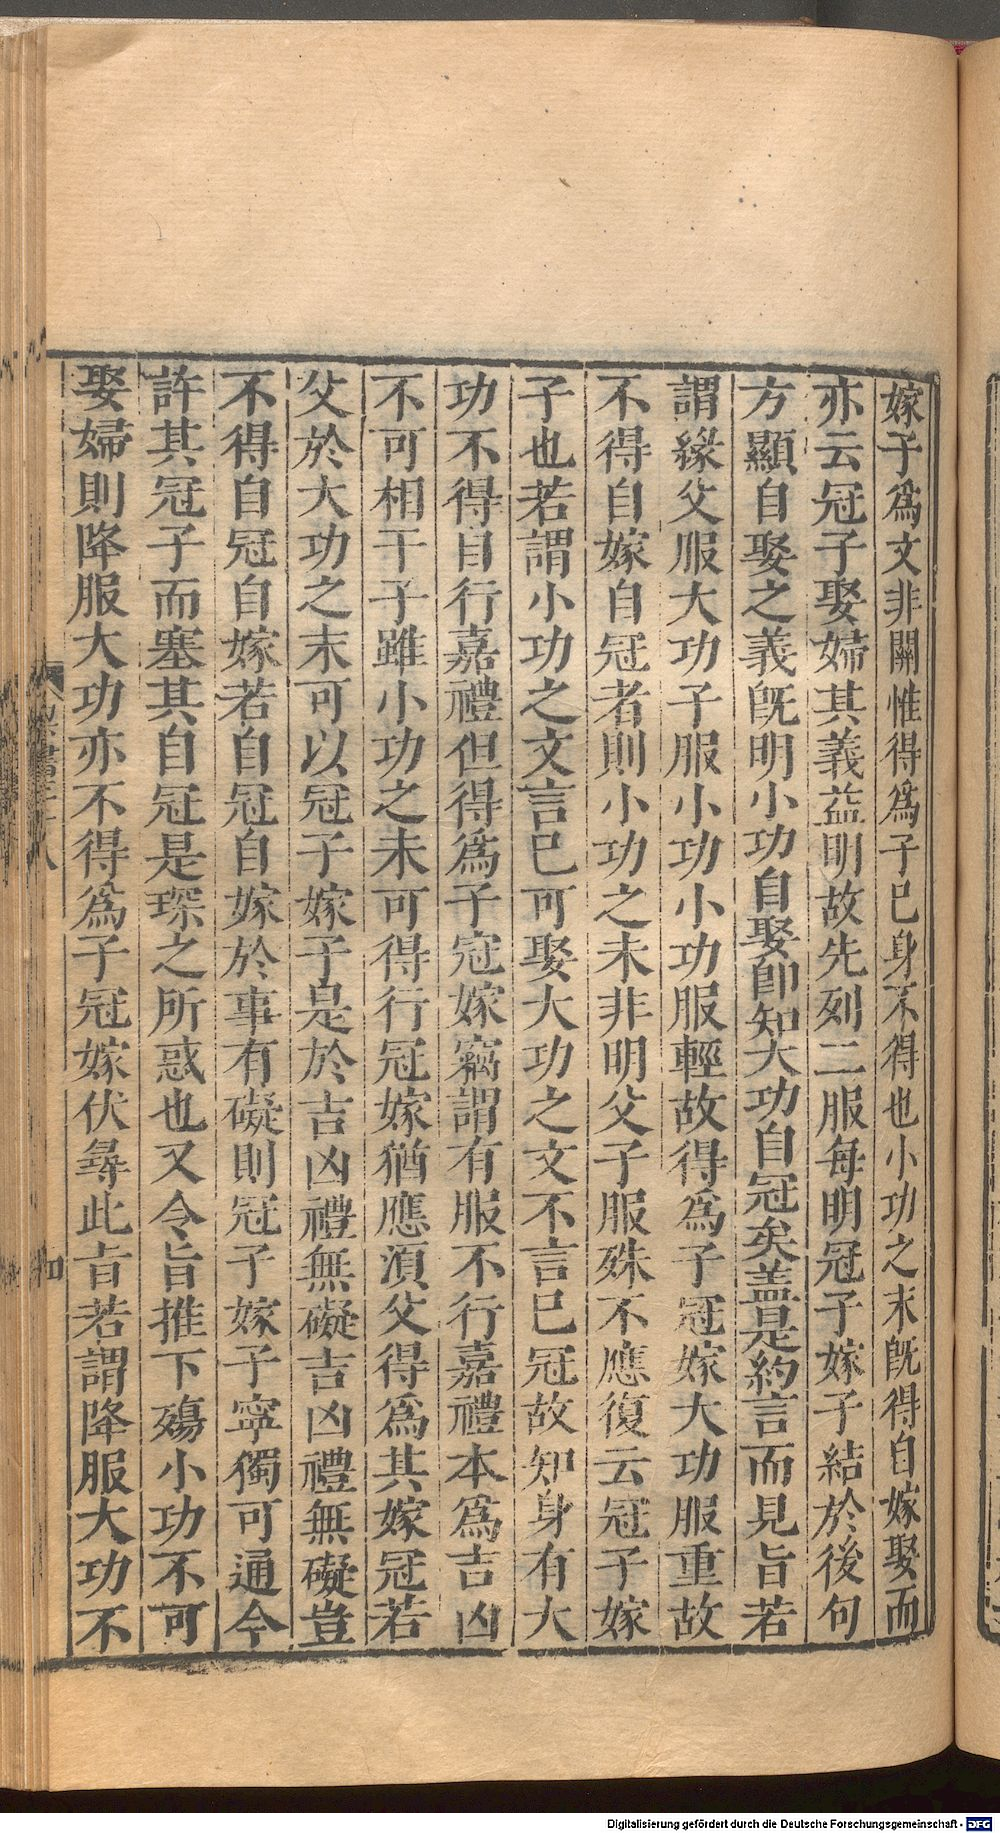 嫁子爲文非關惟得爲子巳身不得也小功之末旣得自嫁娶而
亦云冠子娶婦其義益明故先列二服每明冠子嫁子結於後句
方顯自娶之義旣明小功自娶卽知大功自冠矣盖是約言而見旨若
謂緣父服大功子服小功小功服輕故得爲子冠嫁大功服重故
不得自嫁自冠者則小功之末非明父子服殊不應復云冠子嫁
子也若謂小功之文言巳可娶大功之文不言巳冠故知身有大
功不得自行嘉禮但得爲子冠嫁竊謂有服不行嘉禮本爲吉凶
不可相干子雖小功之末可得行冠嫁猶應湏父得爲其嫁冠若
父於大功之末可以冠子嫁子是於吉凶禮無礙吉凶禮無礙豈
不得自冠自嫁若自冠自嫁於事有礙則冠子嫁子寧獨可通今
許其冠子而塞其自冠是琛之所惑也又令旨推下殤小功不可
娶婦則降服大功亦不得爲子冠嫁伏尋此旨若謂降服大功不
Digitalisierung gefördert durch die Deutsche Forschungsgemeinschaft - DFG